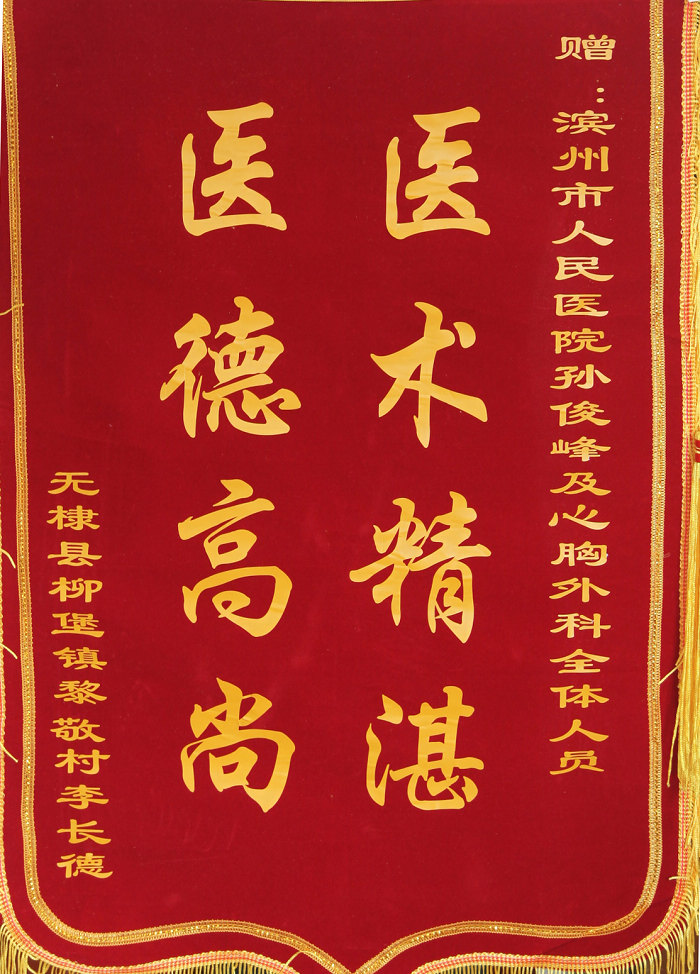 赠：滨州市人民医院孙俊峰及心胸外科全体人员
医术精湛
医德高尚
无棣县柳堡镇黎敬村李长德